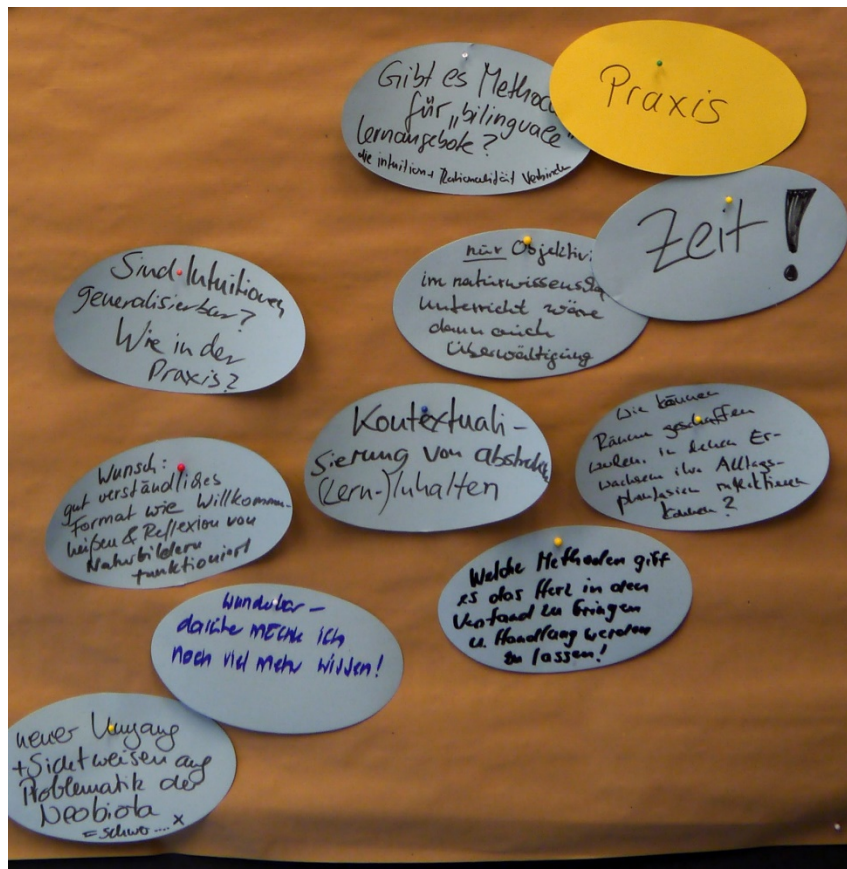 Gibt es Method
für „bilinguale"
Lernangebote?
die intuition + Rationalität verbinden
Praxis
Zeit!
Sind Intuitionen
generalisierbar?
Wie in der
Praxis?
nur Objektivi
im naturwissenscha
Unterricht wäre
dann auch
Überwältigung
Kontextuali-
sierung von abstrakten
(Lern-)Inhalten
Wie können
Räume geschaffen
werden, in denen Er-
wachsene ihre Alltags-
phantasien reflektieren
können?
Wunsch:
gut verständliches
Format wie Willkommen-
heißen & Reflexion von
Naturbildern
funktioniert
Welche Methoden gibt
es das Herz in den
Verstand zu bringen
u. Handlung werden
zu lassen!
Wunderbar –
darüber möchte ich
noch viel mehr wissen!
neuer Umgang
+ Sichtweisen auf
Problematik der
Neobiota
= schwer .... x